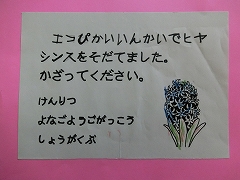 エコぴかいいんかいでヒヤ
シンスをそだてました。
かざってください。
けんりつ
よなごようごがっこう
しょうがくぶ